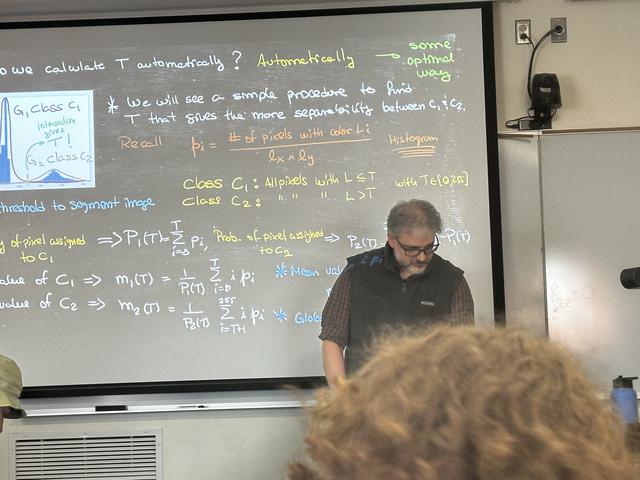 o we calculate T automatically? Automatically → some optimal way.
G1 Class C1
intersection gives T!
G2 Class C2
* We will see a simple procedure to find
T that gives the more separability between C1 & C2.
Recall pi = # of pixels with color Li / lx × ly Histogram
Class C1: All pixels with L ≤ T with T∈[0,255]
Class C2: " " " L > T
threshold to segment image
y of pixel assigned to C1 ⇒ P1(T) = Σ_{i=0}^{T} pi, Prob. of pixel assigned to C2 ⇒ P2(T)
P1(T)
value of C1 ⇒ m1(T) = 1/P1(T) Σ_{i=0}^{T} i pi * Mean val
value of C2 ⇒ m2(T) = 1/P2(T) Σ_{i=T+1}^{255} i pi * Globa